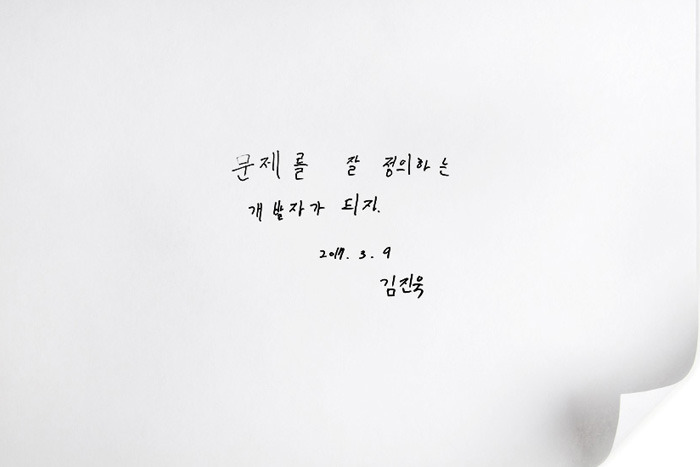 문제를 잘 정의하는
개발자가 되자.
2017. 3. 9
김진욱